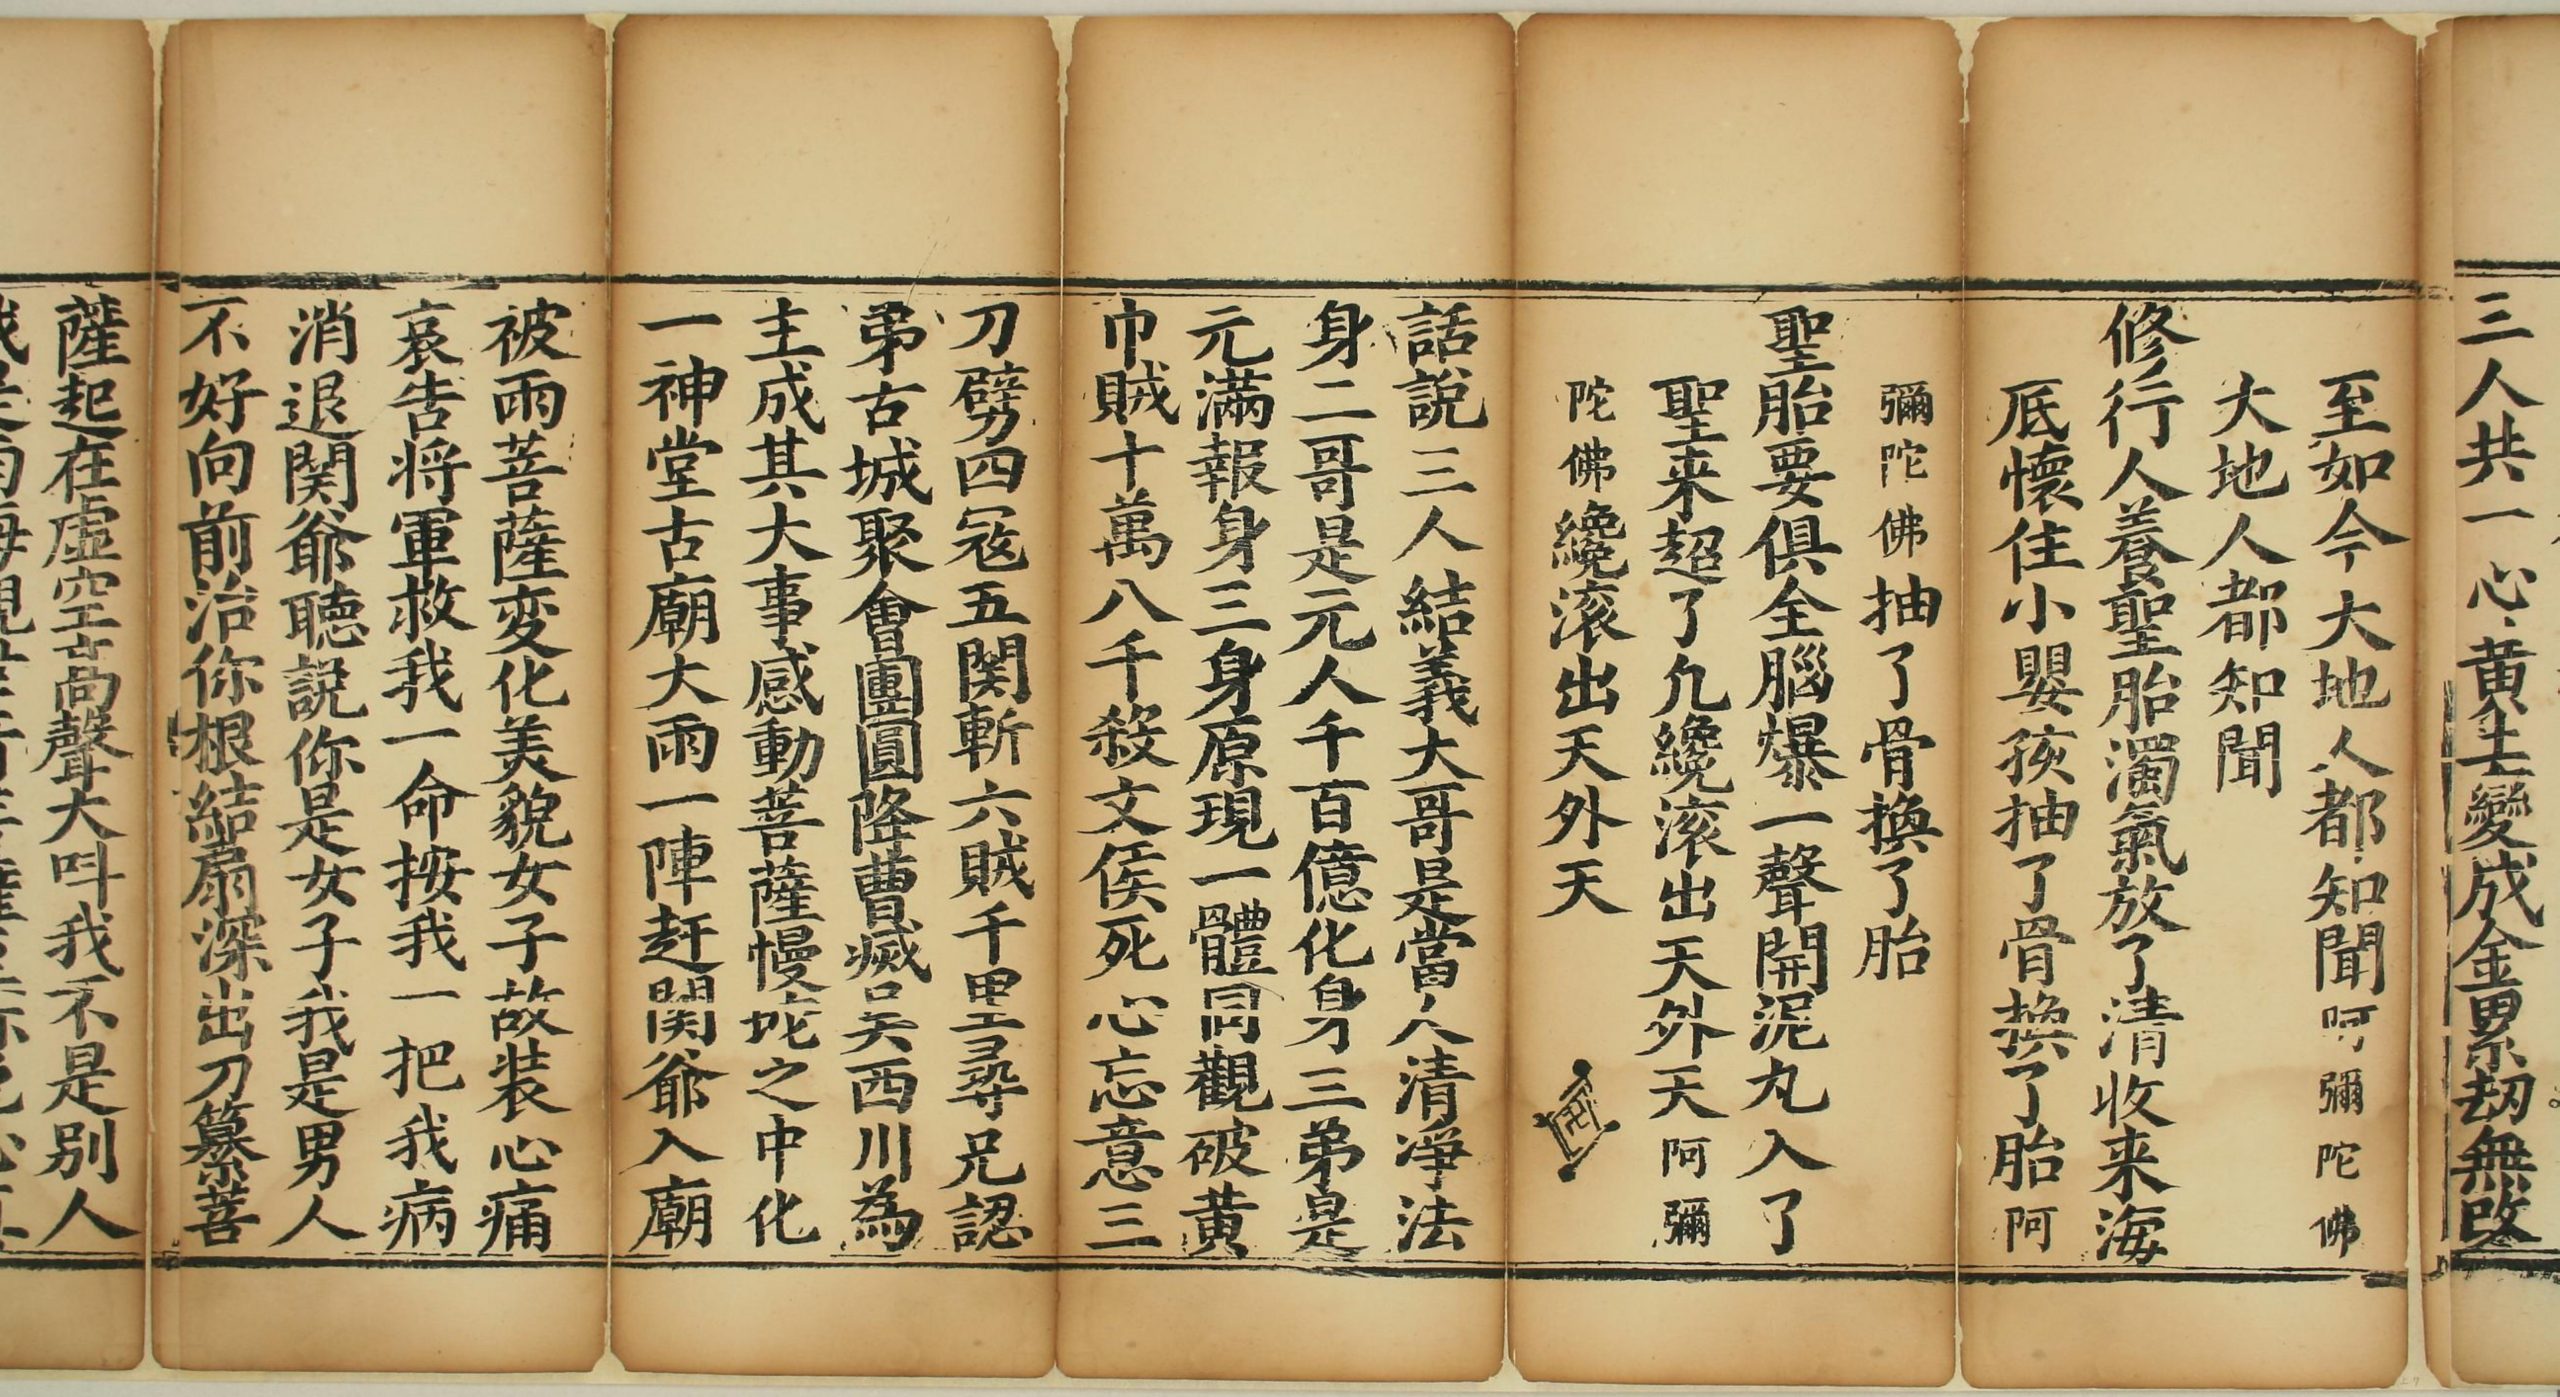 三人共一心黄土變成金累劫無改
至如今大地人都知聞阿彌陀佛
大地人都知聞
修行人養聖胎濁氣放了清收来海
底懷住小嬰孩抽了骨換了胎阿
彌陀佛抽了骨換了胎
聖胎要俱全腦爆一聲開泥丸入了
聖来超了凢纔滚出天外天阿彌
陀佛纔滚出天外天
話說三人結義大哥是當人清淨法
身二哥是元人千百億化身三弟是
元滿報身三身原現一體同觀破黄
巾賊十萬八千殺文侯死心忘意三
刀劈四冦五関斬六賊千里尋兄認
弟古城聚會團圓降曹滅吳西川為
主成其大事感動菩薩慢坨之中化
一神堂古廟大雨一陣赶関爺入廟
被雨菩薩変化美貌女子故装心痛
哀告将軍救我一命按我一把我病
消退関爺聽說你是女子我是男人
不好向前治你根結扇深出刀纂菩
薩起在虛空髙聲大呌我不是别人